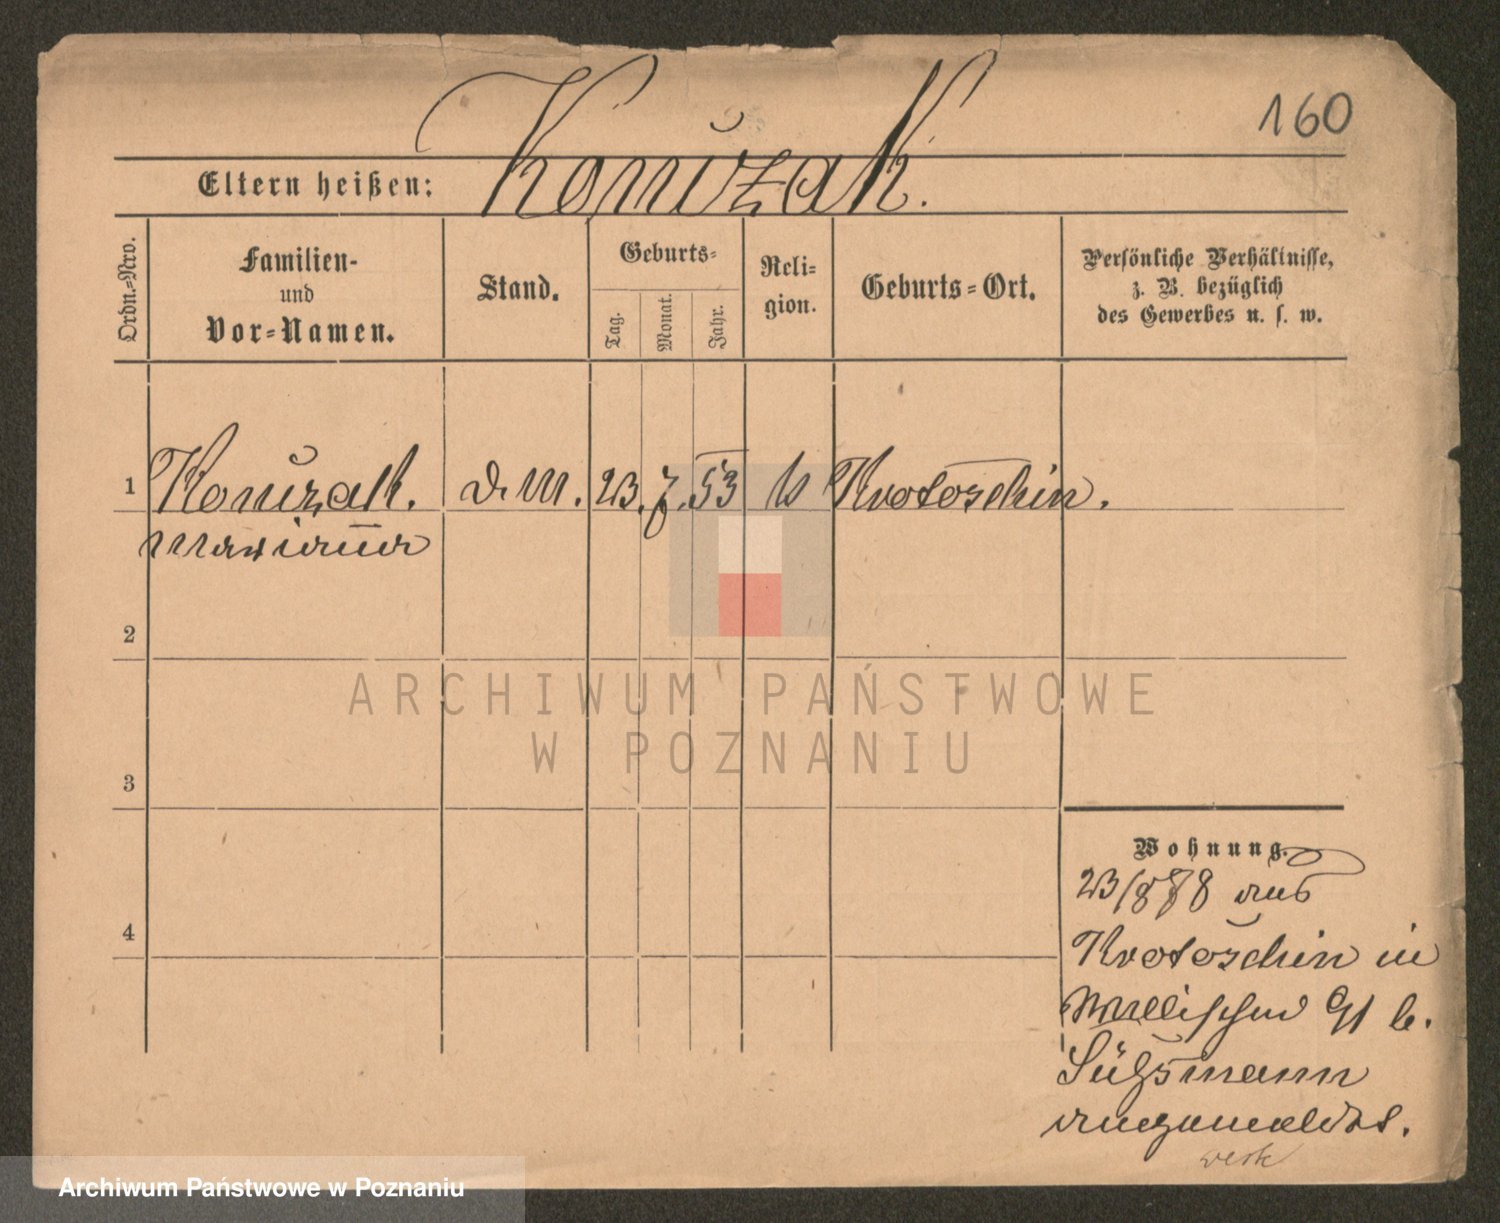 160
Eltern heißen: Konŭzak.
Ordn.-Nro.
Familien-
und
Vor-Namen.
Stand.
Geburts-
Tag.
Monat.
Jahr.
Reli-
gion.
Geburts-Ort.
Persönliche Verhältnisse,
z. B. bezüglich
des Gewerbes u. s. w.
1 Konŭzak. d. M. 23. 7. 53 k Krotoschin.
Marianna
2
ARCHIWUM PAŃSTWOWE
W POZNANIU
3
Wohnung.
23/8 78 aus
4
Krotoschin in
Wallischei 91 b.
angemeldet.
Archiwum Państwowe w Poznaniu